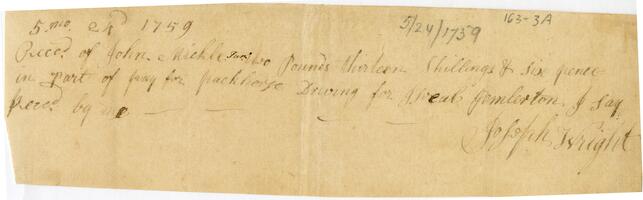 5 mo 24 1759
5/24/1759
163-3A
Reced of John Mickle Junr two Pounds thirteen Shillings & six pence
in part of pay for packhorse Driving for Pemberton I say
Reced by me
Joseph Wright